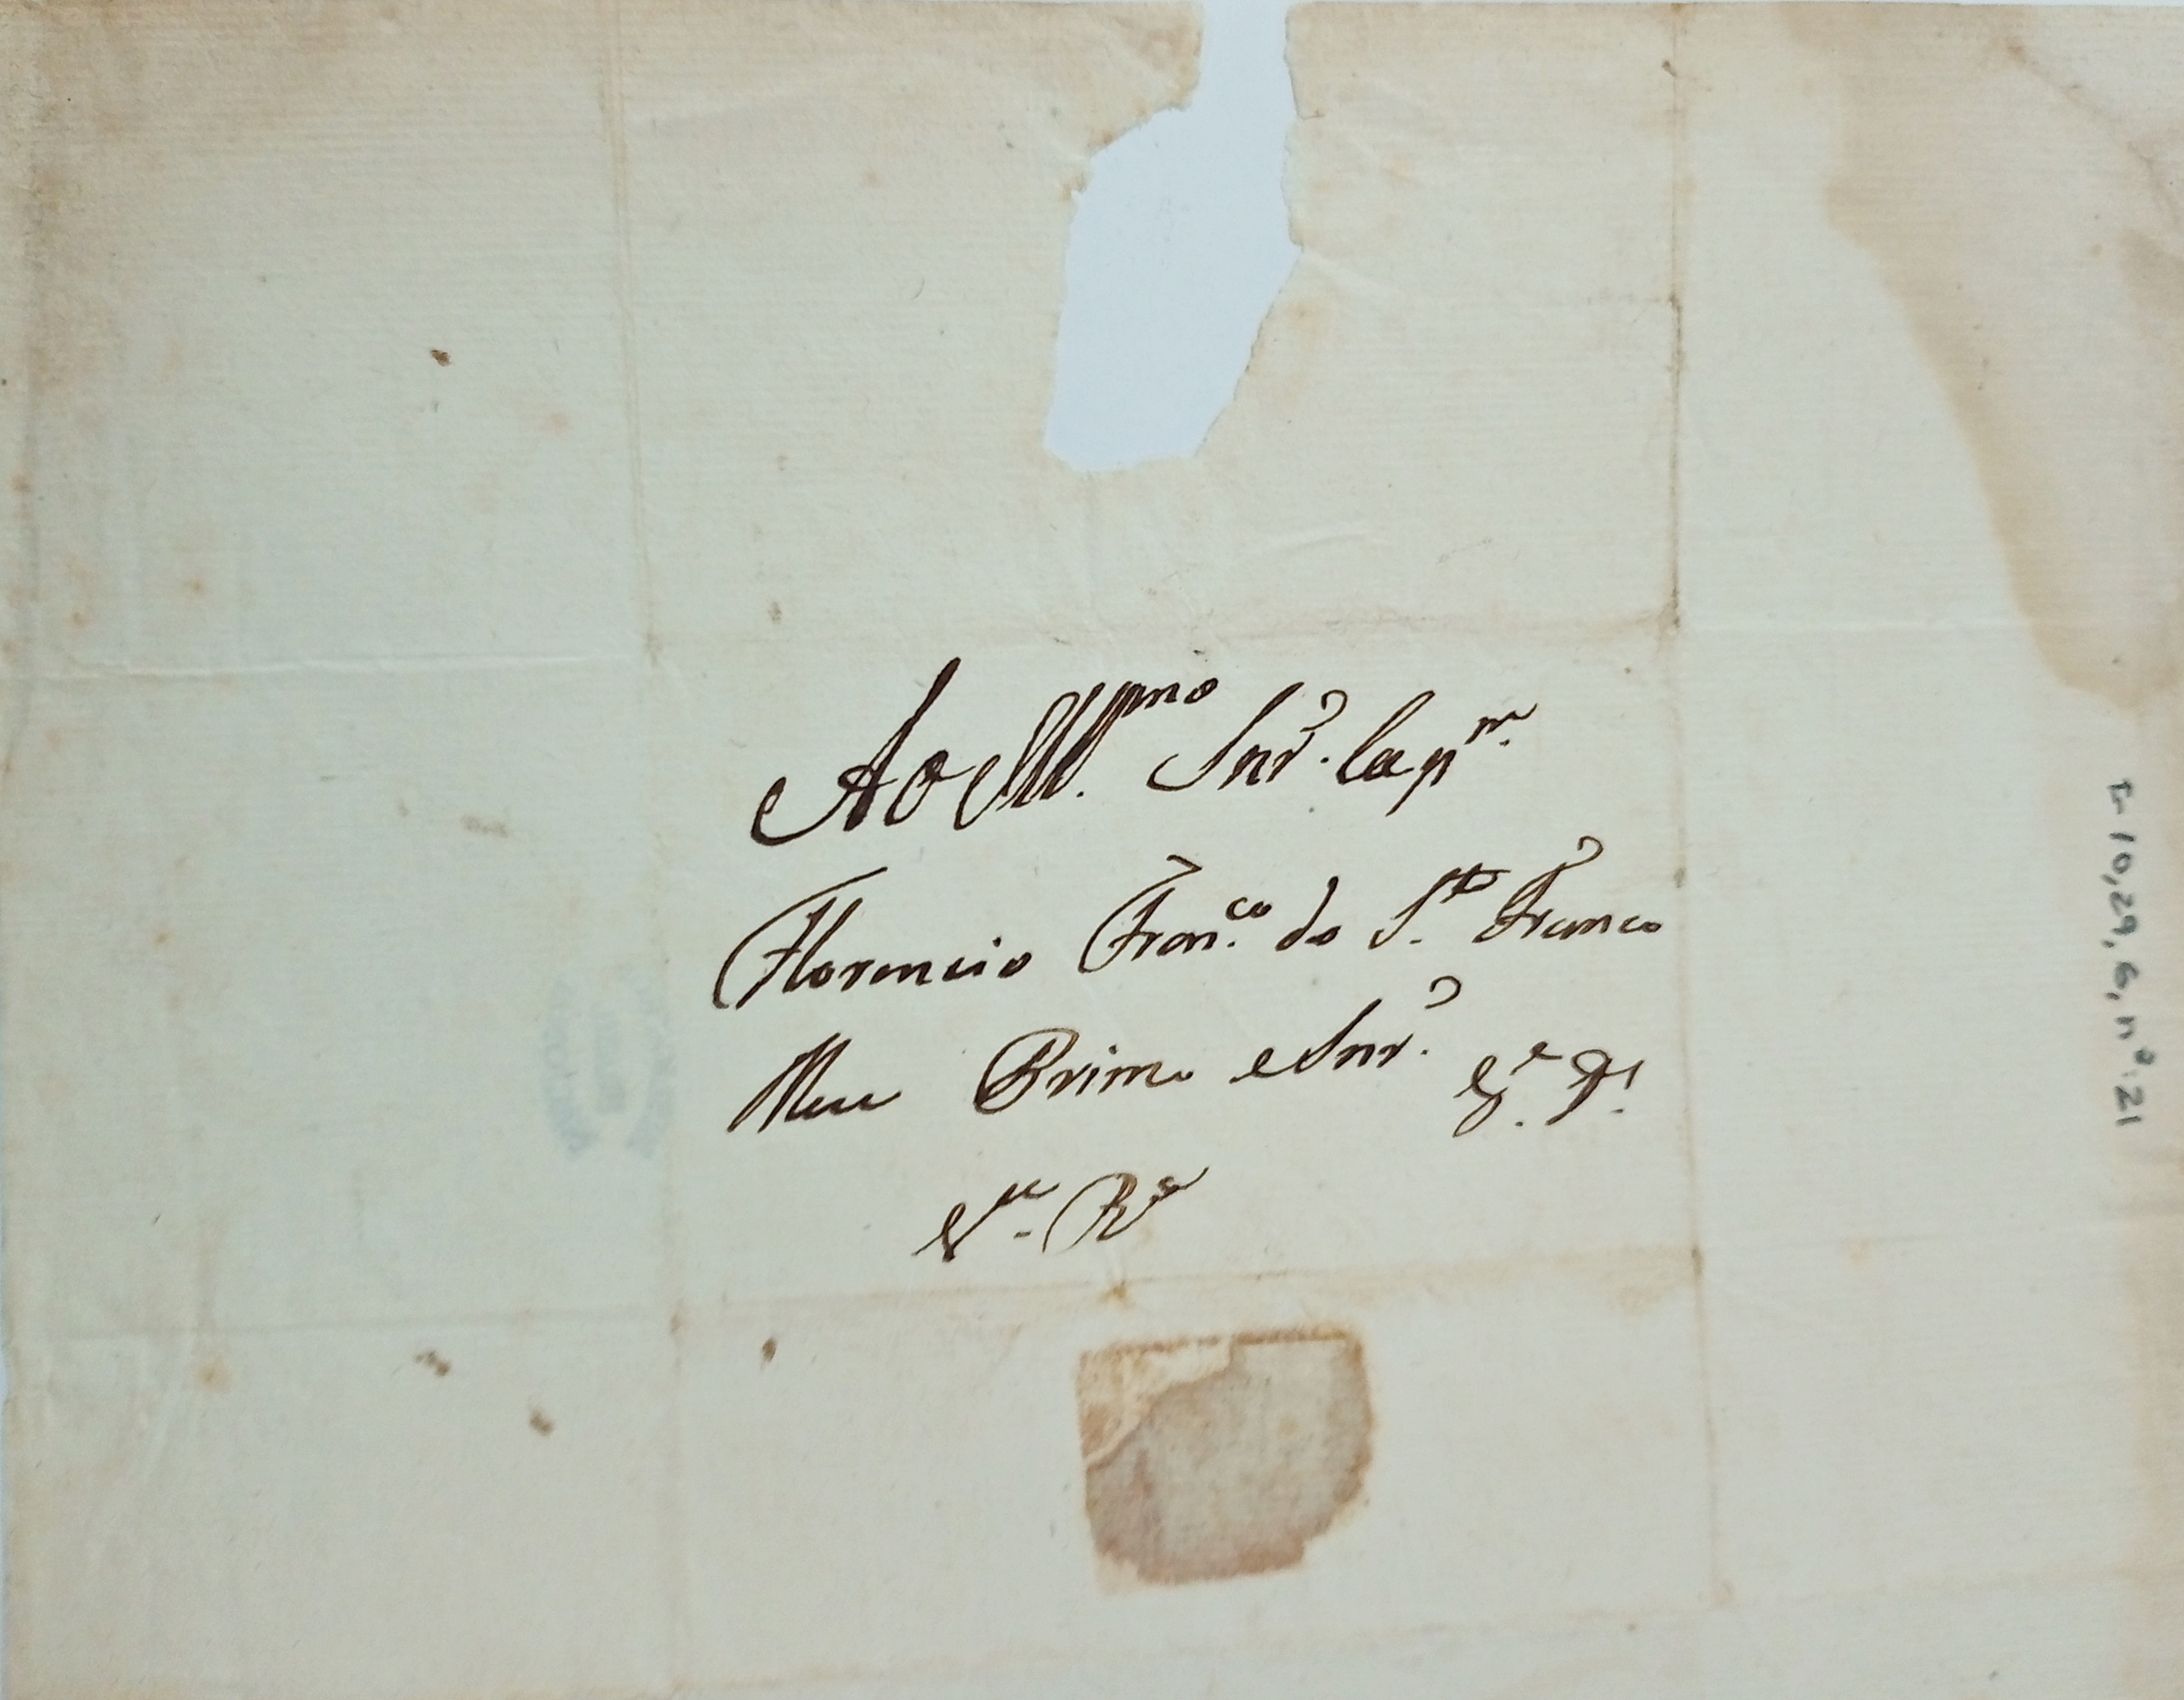 Ao Ill.mo Snr. Cap.m
Florencio Fran.co do S.tos Franco
Meu Primo e Snr. G.e D.s
I-10,29,6,nº.21